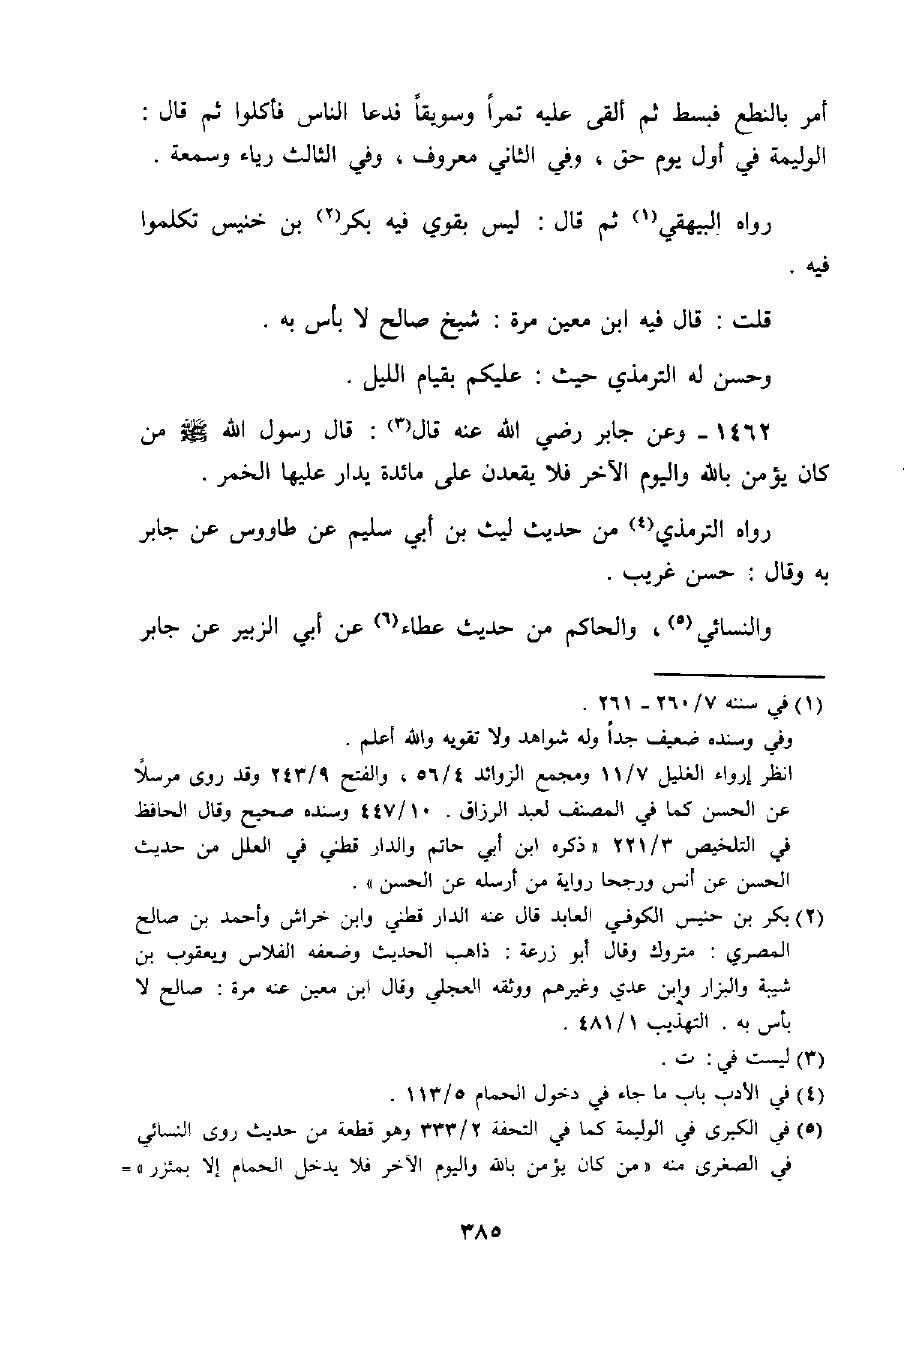 أمر بالنطع فبسط ثم ألقى عليه تمراً وسويقاً فدعا الناس فأكلوا ثم قال :
الوليمة في أول يوم حق ، وفي الثاني معروف ، وفي الثالث رياء وسمعة .
رواه البيهقي(١) ثم قال : ليس بقوي فيه بكر(٢) بن خنيس تكلموا
فيه .
قلت : قال فيه ابن معين مرة : شيخ صالح لا بأس به .
وحسن له الترمذي حيث : عليكم بقيام الليل .
١٤٦٢ ـ وعن جابر رضي الله عنه قال(٣) : قال رسول الله ﷺ من
كان يؤمن بالله واليوم الآخر فلا يقعدن على مائدة يدار عليها الخمر .
رواه الترمذي(٤) من حديث ليث بن أبي سليم عن طاووس عن جابر
به وقال : حسن غريب .
والنسائي(٥) ، والحاكم من حديث عطاء(٦) عن أبي الزبير عن جابر
(١) في سننه ٢٦٠/٧ ـ ٢٦١ .
وفي وسنده ضعيف جداً وله شواهد ولا تقويه والله أعلم .
انظر إرواء الغليل ١١/٧ ومجمع الزوائد ٥٦/٤ ، والفتح ٢٤٣/٩ وقد روى مرسلاً
عن الحسن كما في المصنف لعبد الرزاق . ٤٤٧/١٠ وسنده صحيح وقال الحافظ
في التلخيص ٢٢١/٣ « ذكره ابن أبي حاتم والدار قطني في العلل من حديث
الحسن عن أنس ورجحا رواية من أرسله عن الحسن » .
(٢) بكر بن حنيس الكوفي العابد قال عنه الدار قطني وابن خراش وأحمد بن صالح
المصري : متروك وقال أبو زرعة : ذاهب الحديث وضعفه الفلاس ويعقوب بن
شيبة والبزار وابن عدي وغيرهم ووثقه العجلي وقال ابن معين عنه مرة : صالح لا
بأس به . التهذيب ٤٨١/١ .
(٣) ليست في : ت .
(٤) في الأدب باب ما جاء في دخول الحمام ١١٣/٥ .
(٥) في الكبرى في الوليمة كما في التحفة ٣٣٣/٢ وهو قطعة من حديث روى النسائي
في الصغرى منه « من كان يؤمن بالله واليوم الآخر فلا يدخل الحمام إلا بمئزر » =
٣٨٥